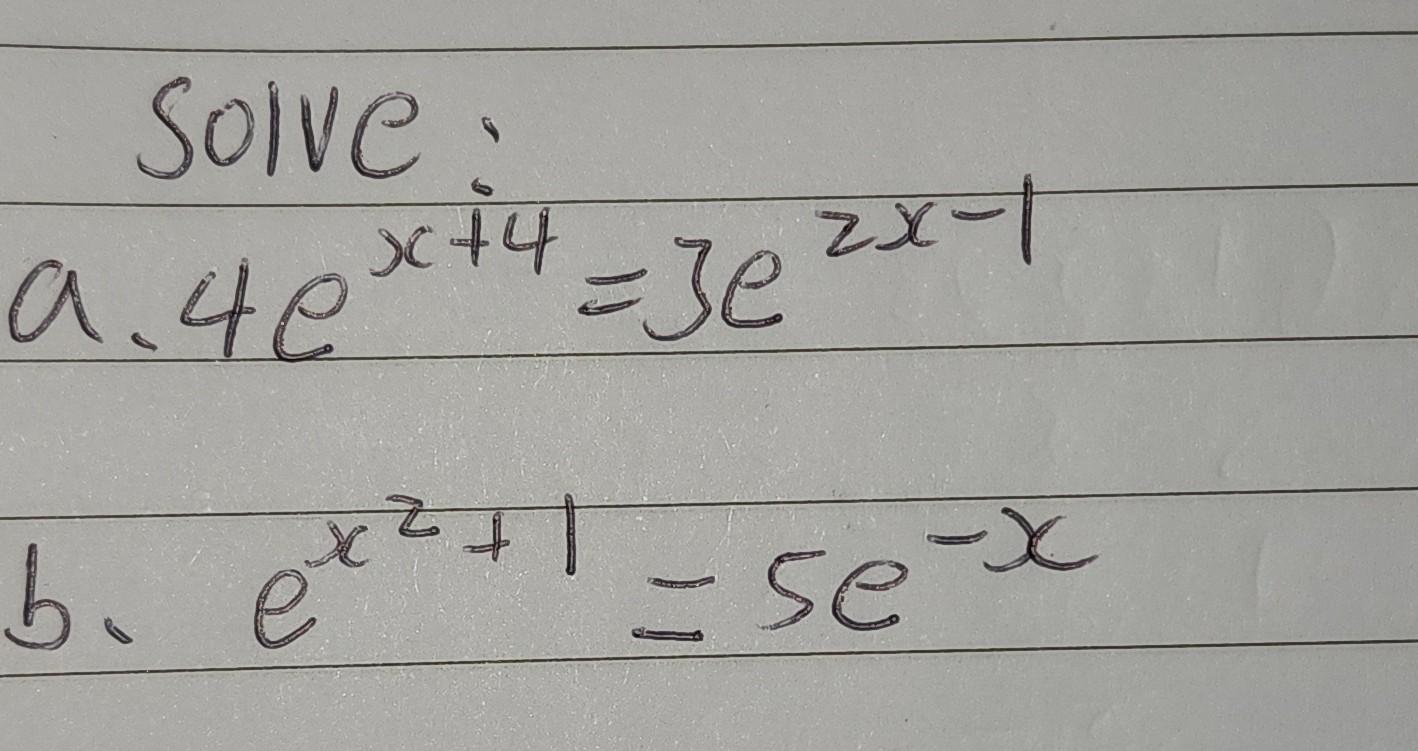 Solve:
a. 4e^{x+4} = 3e^{2x-1}
b. e^{x^2+1} = 5e^{-x}